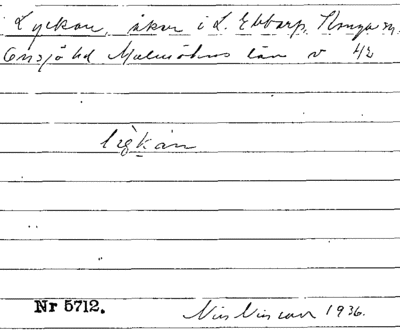 Lyckan, åker i L. Ebbarp, Konga sn.
Onsjö hd Malmöhus län v 42
Nr 5712.
Nils Nilsson 1936.